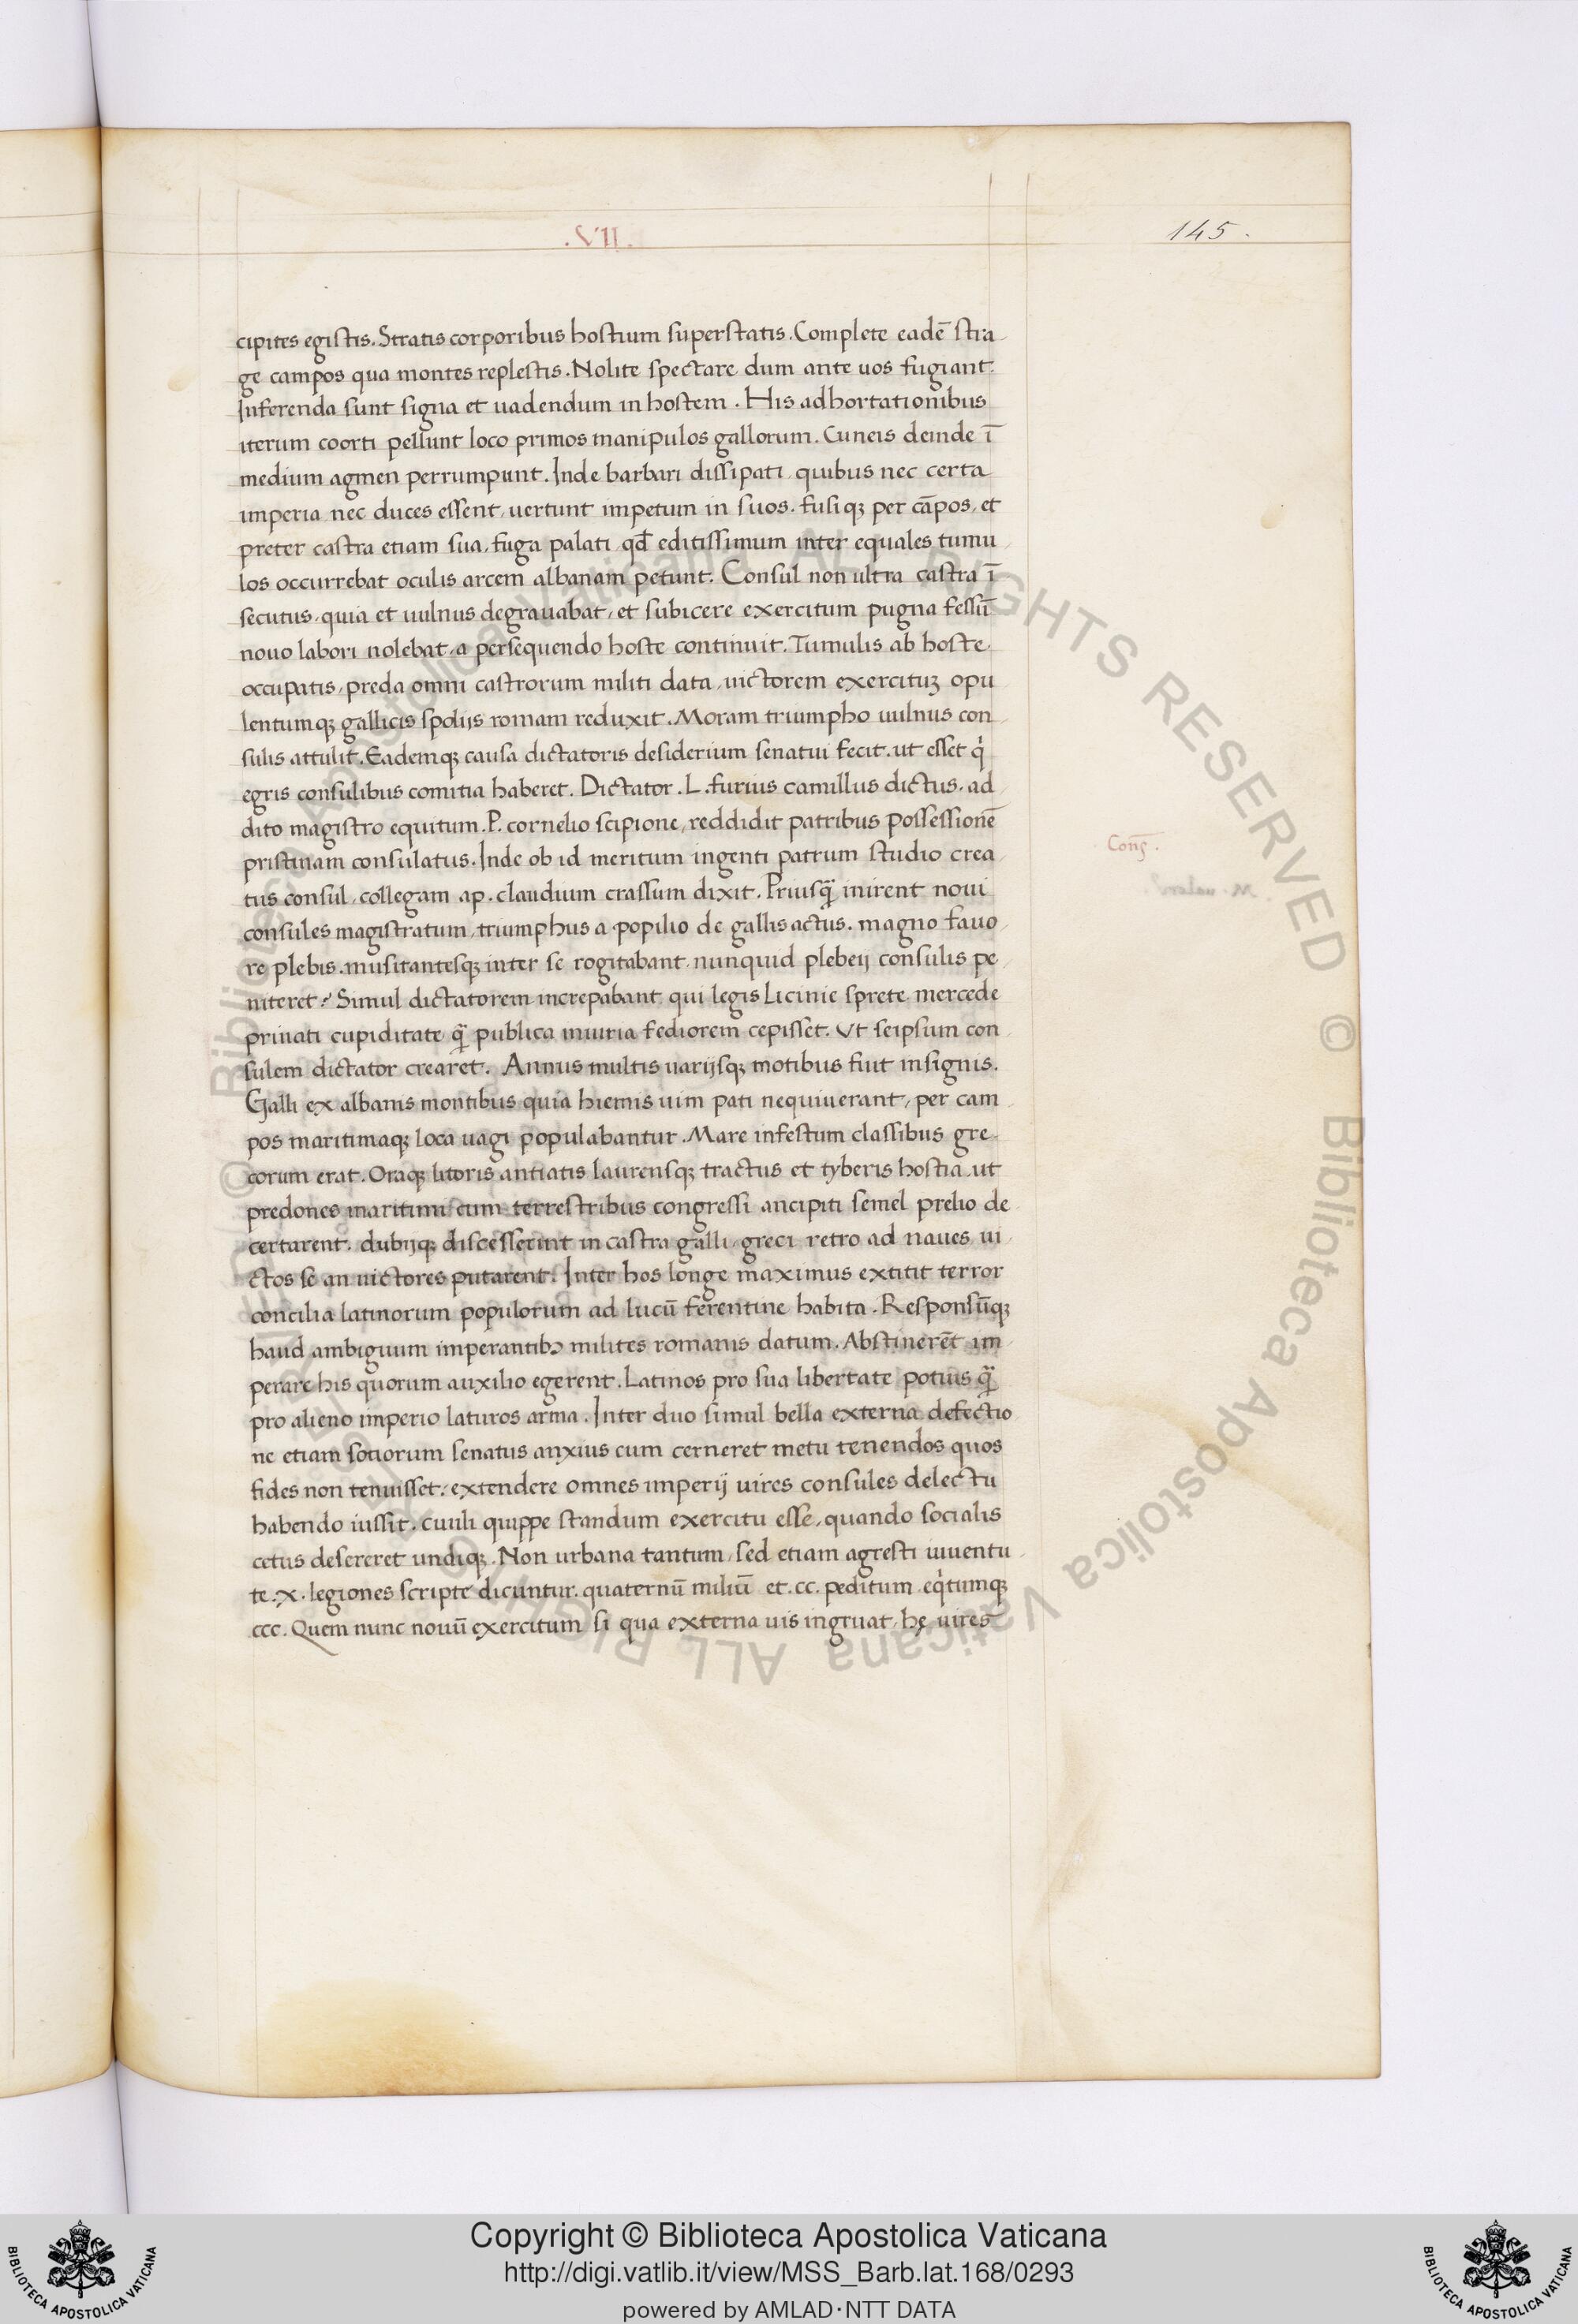 .VII.
145.
cipites egistis. Stratis corporibus hostium superstatis. Complete eadē stra
ge campos qua montes replestis. Nolite spectare dum ante uos fugiant.
Inferenda sunt signa et uadendum in hostem. His adhortationibus
iterum coorti pellunt loco primos manipulos gallorum. Cuneis deinde ī
medium agmen perrumpunt. Inde barbari dissipati quibus nec certa
imperia nec duces essent, uertunt impetum in suos. fusiqꝫ per cāpos, et
preter castra etiam sua, fuga palati qd̄ editissimum inter equales tumu
los occurrebat oculis arcem albanam petunt. Consul non ultra castra ī
secutus, quia et uulnus degrauabat, et subicere exercitum pugna fessū
nouo labori nolebat, a persequendo hoste continuit. Tumulis ab hoste
occupatis, preda omni castrorum militi data, uictorem exercituꝫ opu
lentumqꝫ gallicis spolijs romam reduxit. Moram triumpho uulnus con
sulis attulit. Eademqꝫ causa dictatoris desiderium senatui fecit. ut esset qͥ
egris consulibus comitia haberet. Dictator. L. furius camillus dictus. ad
dito magistro equitum. P. cornelio scipione, reddidit patribus possessionē
pristinam consulatus. Inde ob id meritum ingenti patrum studio crea
Conſ.
tus consul, collegam ap. claudium crassum dixit. Priusq̄ inirent noui
consules magistratum, triumphus a popilio de gallis actus. magno fauo
re plebis. musitantesqꝫ inter se rogitabant nunquid plebeij consulis pe
niteret? Simul dictatorem increpabant qui legis Licinie sprete mercede
priuati cupiditate q̄ publica iniuria fediorem cepisset. Ut seipsum con
sulem dictator crearet. Annus multis uarijsqꝫ motibus fuit insignis.
Galli ex albanis montibus quia hiemis uim pati nequiuerant, per cam
pos maritimaqꝫ loca uagi populabantur. Mare infestum classibus gre
corum erat. Oraqꝫ litoris antiatis laurensqꝫ tractus et tyberis hostia ut
predones maritimi cum terrestribus congressi ancipiti semel prelio de
certarent. dubijqꝫ discesserint in castra galli, greci retro ad naues, ui
ctos se an uictores putarent. Inter hos longe maximus extitit terror
concilia latinorum populorum ad lucū ferentine habita. Responsūqꝫ
haud ambiguum imperantibꝰ milites romanis datum. Abstinerēt im
perare his quorum auxilio egerent. Latinos pro sua libertate potius q̄
pro alieno imperio laturos arma. Inter duo simul bella externa defectio
ne etiam sotiorum senatus anxius cum cerneret metu tenendos quos
fides non tenuisset. extendere omnes imperij uires consules delectu
habendo iussit. ciuili quippe standum exercitu esse, quando socialis
cetus desereret undiqꝫ. Non urbana tantum, sed etiam agresti iuuentu
te. x. legiones scripte dicuntur. quaternū miliū et. cc. peditum eqͥtumqꝫ
ccc. Quem nunc nouū exercitum si qua externa uis ingruat, hę uires
© Biblioteca Apostolica Vaticana ALL RIGHTS RESERVED © Biblioteca Apostolica Vaticana ALL RIGHTS RESERVED
Copyright © Biblioteca Apostolica Vaticana
http://digi.vatlib.it/view/MSS_Barb.lat.168/0293
powered by AMLAD·NTT DATA
BIBLIOTECA APOSTOLICA VATICANA
BIBLIOTECA APOSTOLICA VATICANA